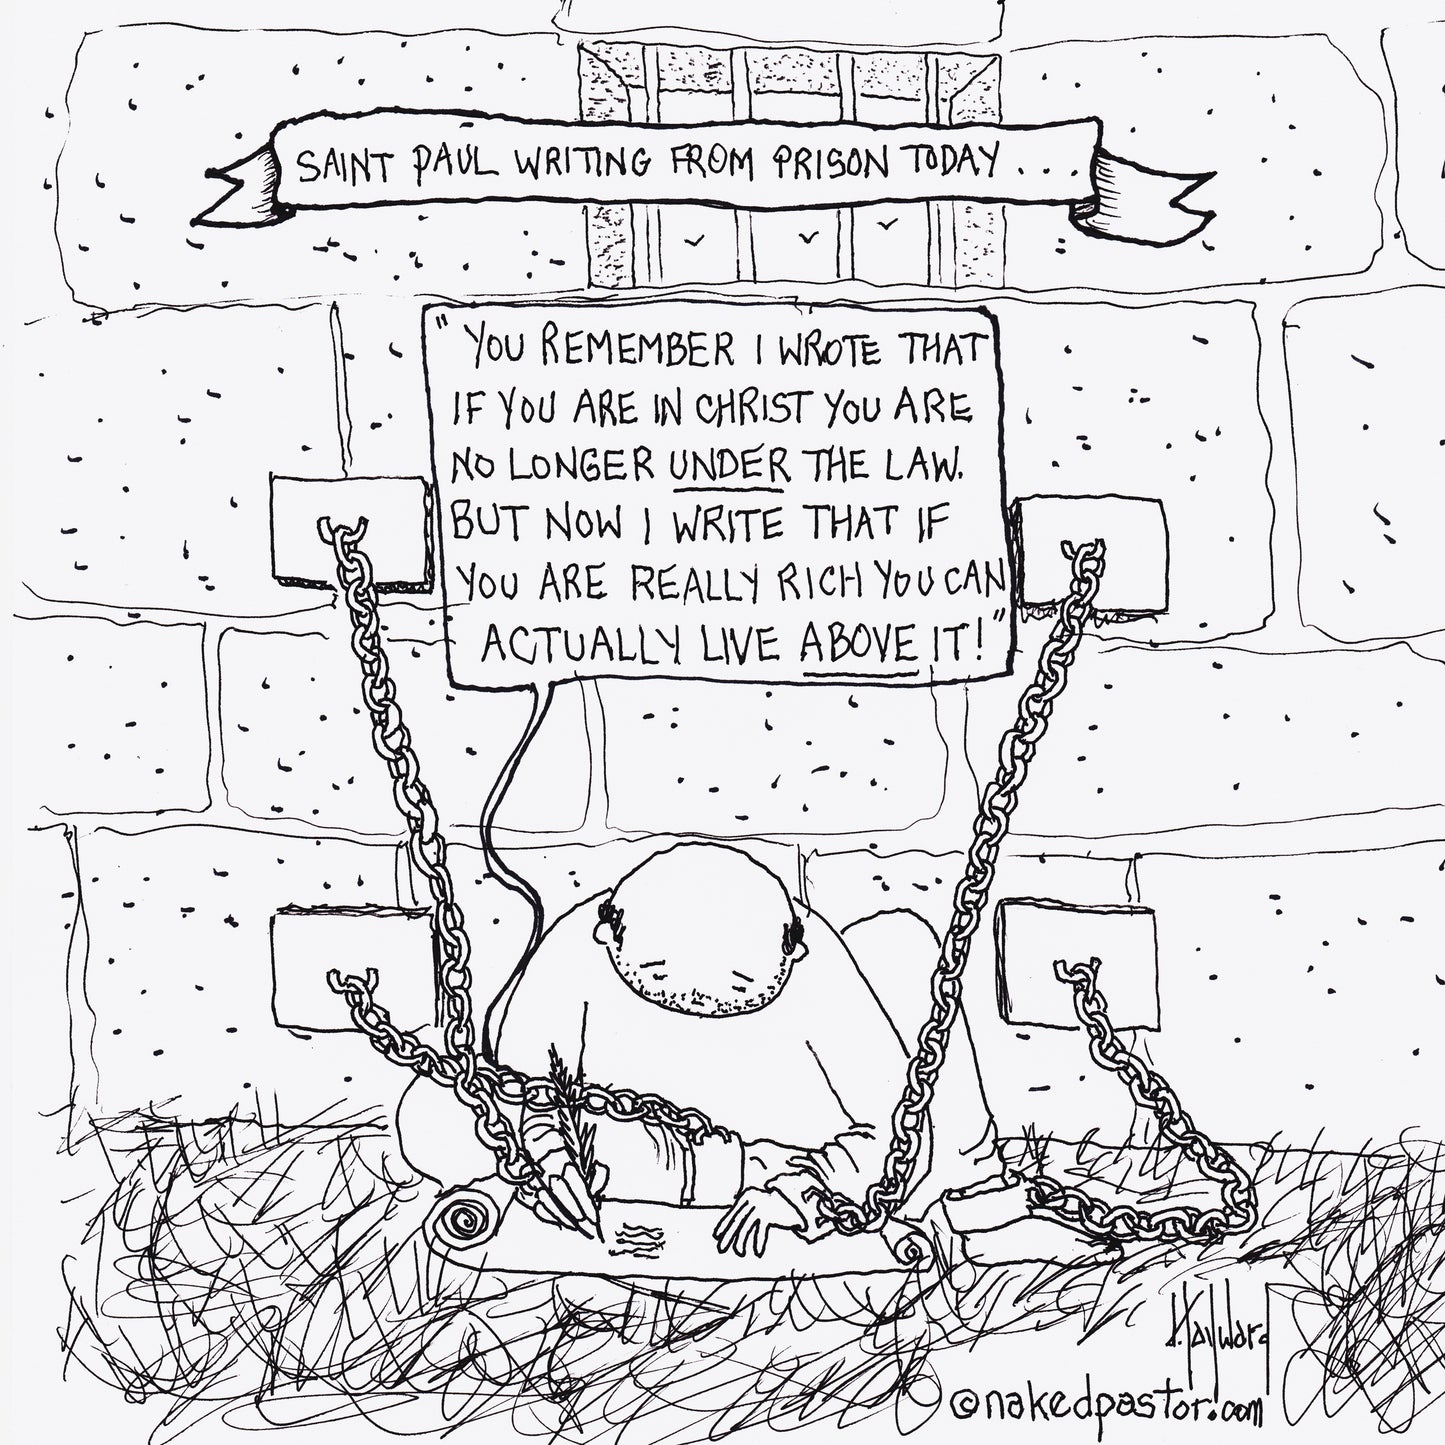 SAINT PAUL WRITING FROM PRISON TODAY . . .
"YOU REMEMBER I WROTE THAT
IF YOU ARE IN CHRIST YOU ARE
NO LONGER UNDER THE LAW.
BUT NOW I WRITE THAT IF
YOU ARE REALLY RICH YOU CAN
ACTUALLY LIVE ABOVE IT!"
D.Hayward
©nakedpastor.com